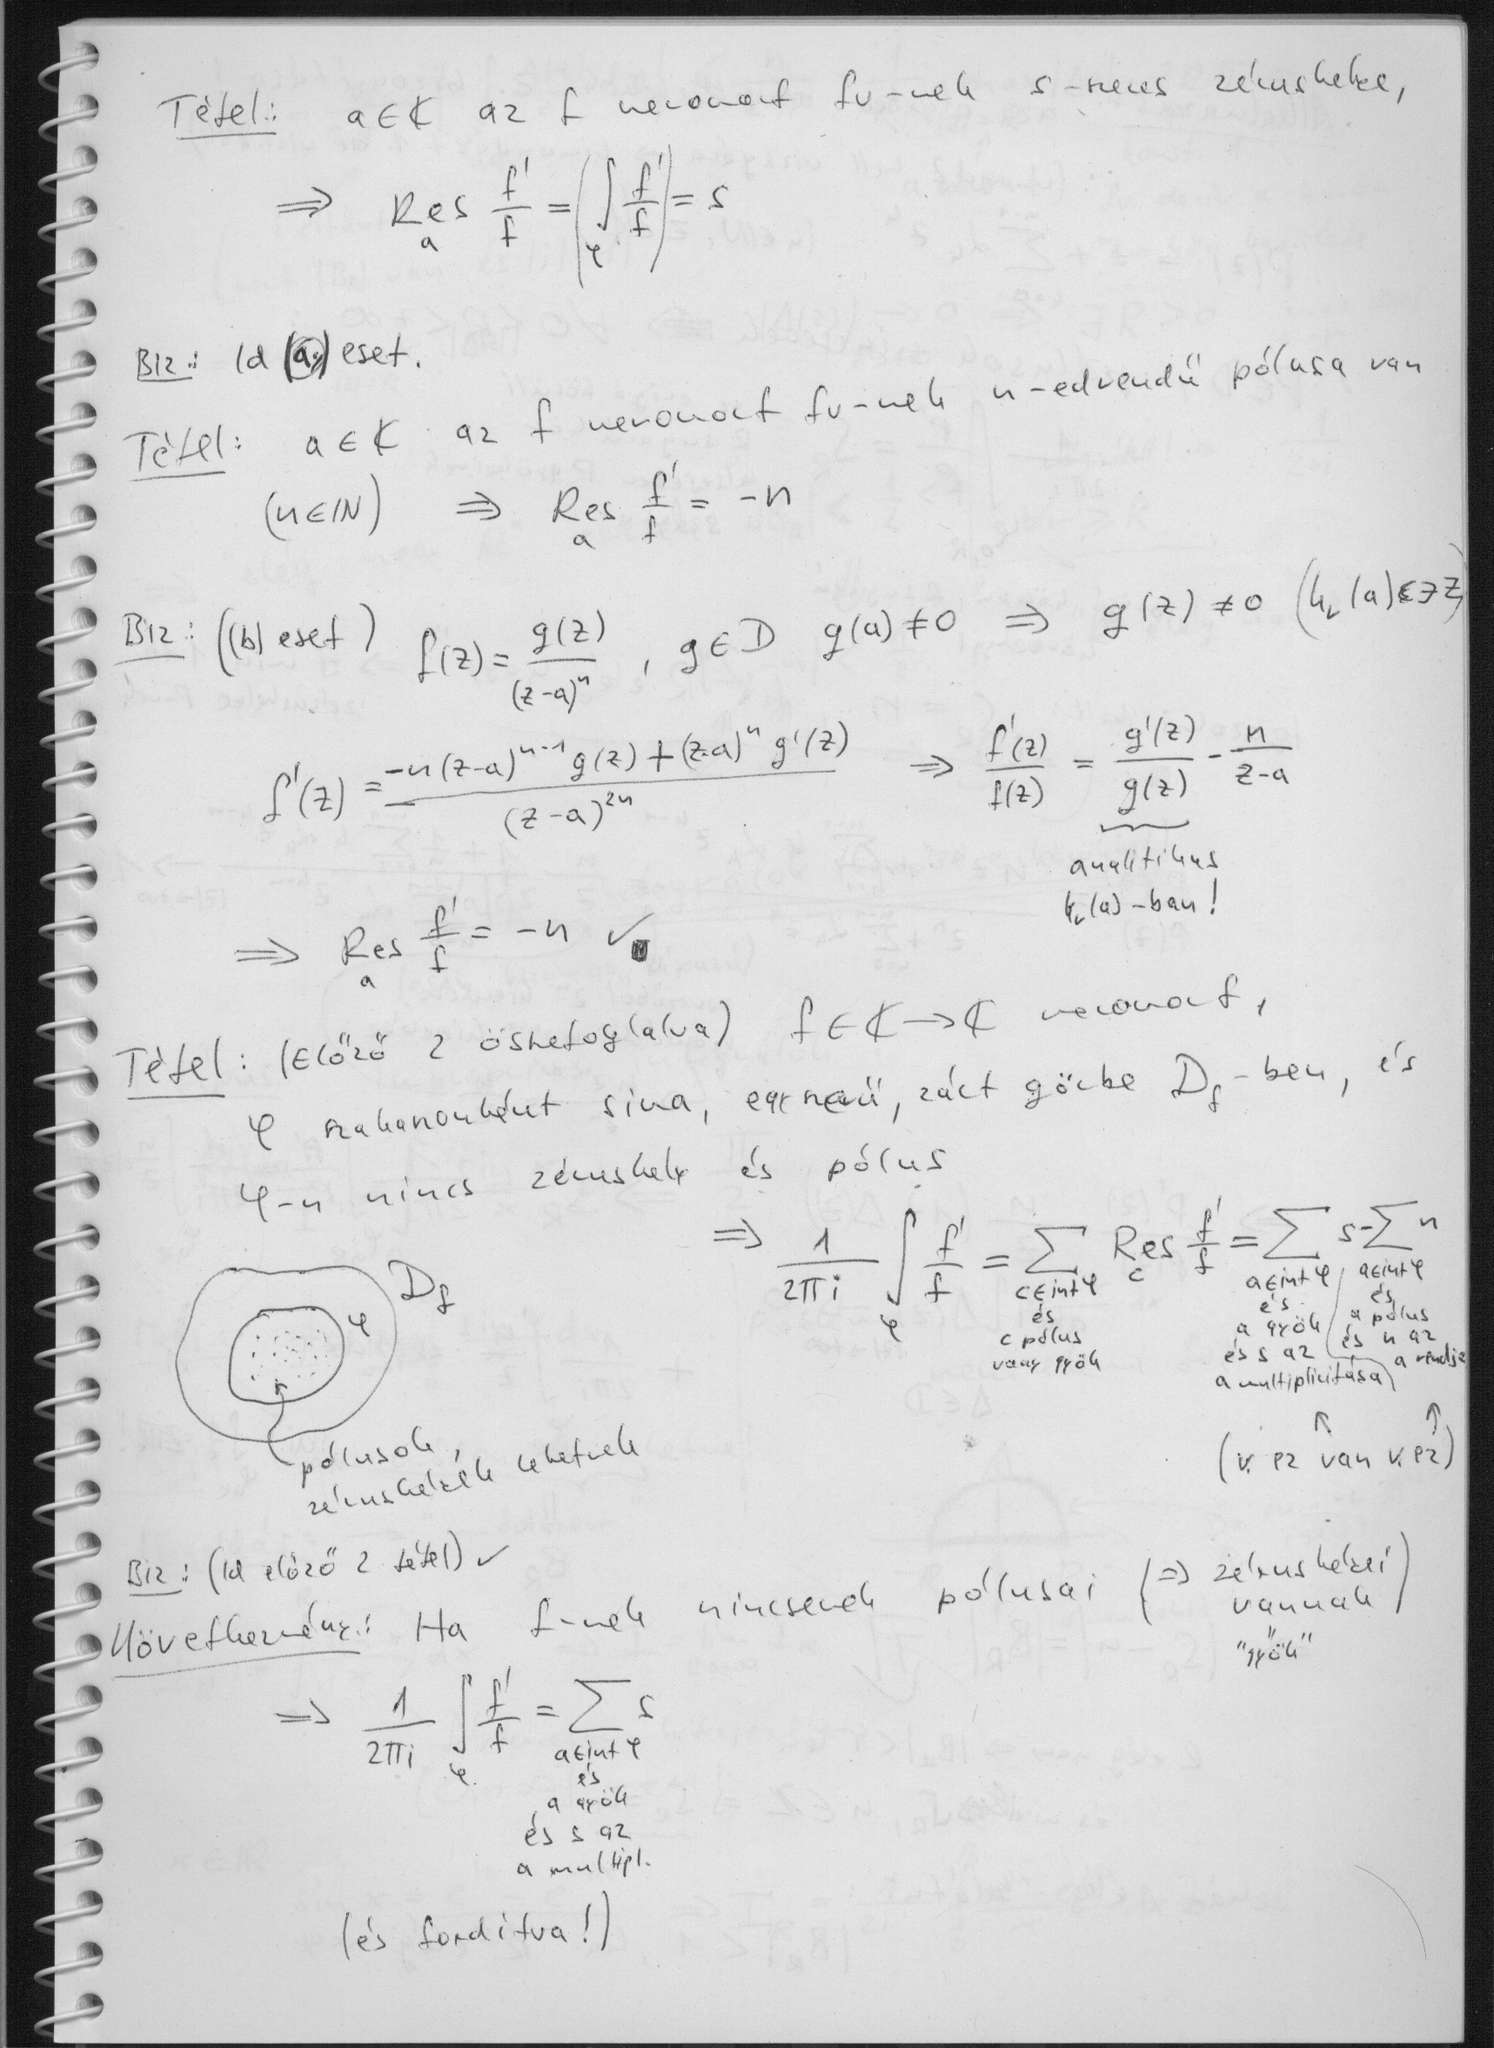 Tétel: a∈ℂ az f meromorf fv-nek s-szeres zérushelye,
⇒ Res_a f'/f = (∫_φ f'/f) = s
Biz.: ld (a) eset.
Tétel: a∈ℂ az f meromorf fv-nek n-edrendű pólusa van
(n∈ℕ) ⇒ Res_a f'/f = -n
Biz.: ((b) eset) f(z) = g(z)/(z-a)^n , g∈D g(a)≠0 ⇒ g(z)≠0 (k_r(a)∋z)
f'(z) = (-n(z-a)^{n-1} g(z) + (z-a)^n g'(z))/(z-a)^{2n} ⇒ f'(z)/f(z) = g'(z)/g(z) - n/(z-a)
analitikus
k_r(a)-ban!
⇒ Res_a f'/f = -n ✓
Tétel: (Előző 2 összefoglalva) f∈ℂ→ℂ meromorf,
φ szakaszonként sima, egyszerű, zárt görbe D_f-ben, és
φ-n nincs zérushely és pólus
⇒ 1/(2πi) ∫_φ f'/f = ∑ Res_c f'/f = ∑ s - ∑ n
c∈int φ és c pólus vagy gyök
a∈int φ és a gyök és s az a multiplicitása
a∈int φ és a pólus és n az a rendje
(v. ez van v. ez)
D_f
φ
pólusok,
zérushelyek lehetnek
Biz.: (ld előző 2 tétel) ✓
Következmény: Ha f-nek nincsenek pólusai (⇒ zérushelyei
vannak)
"gyök"
⇒ 1/(2πi) ∫_φ f'/f = ∑ s
a∈int φ
és
a gyök
és s az
a multipl.
(és fordítva!)